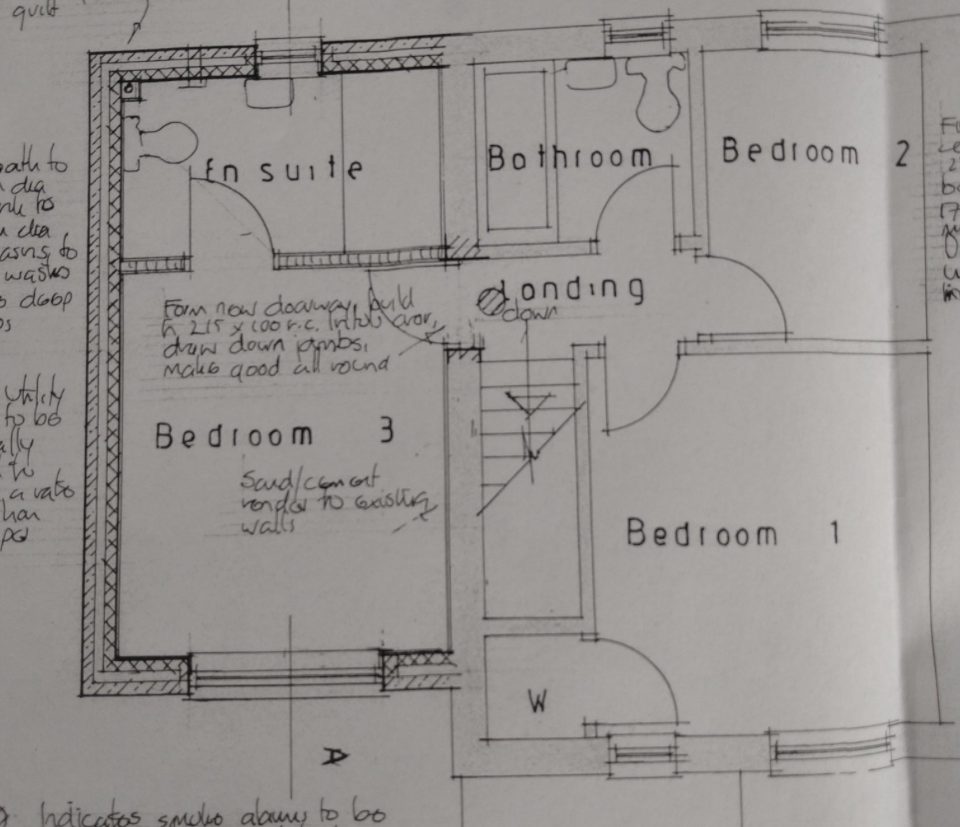 quilt
bath to
dia
to
dia
to
wastes
deep
utility
to be
to
a rate
than
per
En suite
Bathroom
Bedroom 2
Landing
down
Form new doorway, build
in 215 x 100 r.c. lintols over,
draw down jambs,
make good all round
Bedroom 3
Sand/cement
render to existing
walls
Bedroom 1
W
A
Indicates smoke alarms to be